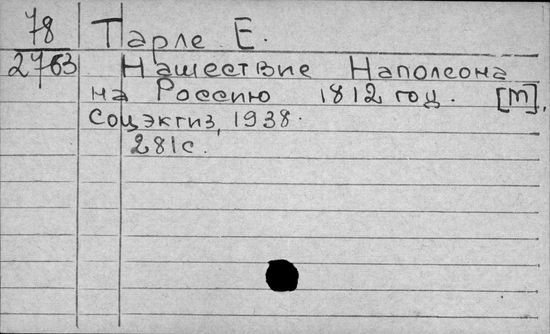 78 Тарле Е.
2763 Нашествие Наполеона
на Россию 1812 год. [М],
Соцэкгиз, 1938.
281с.